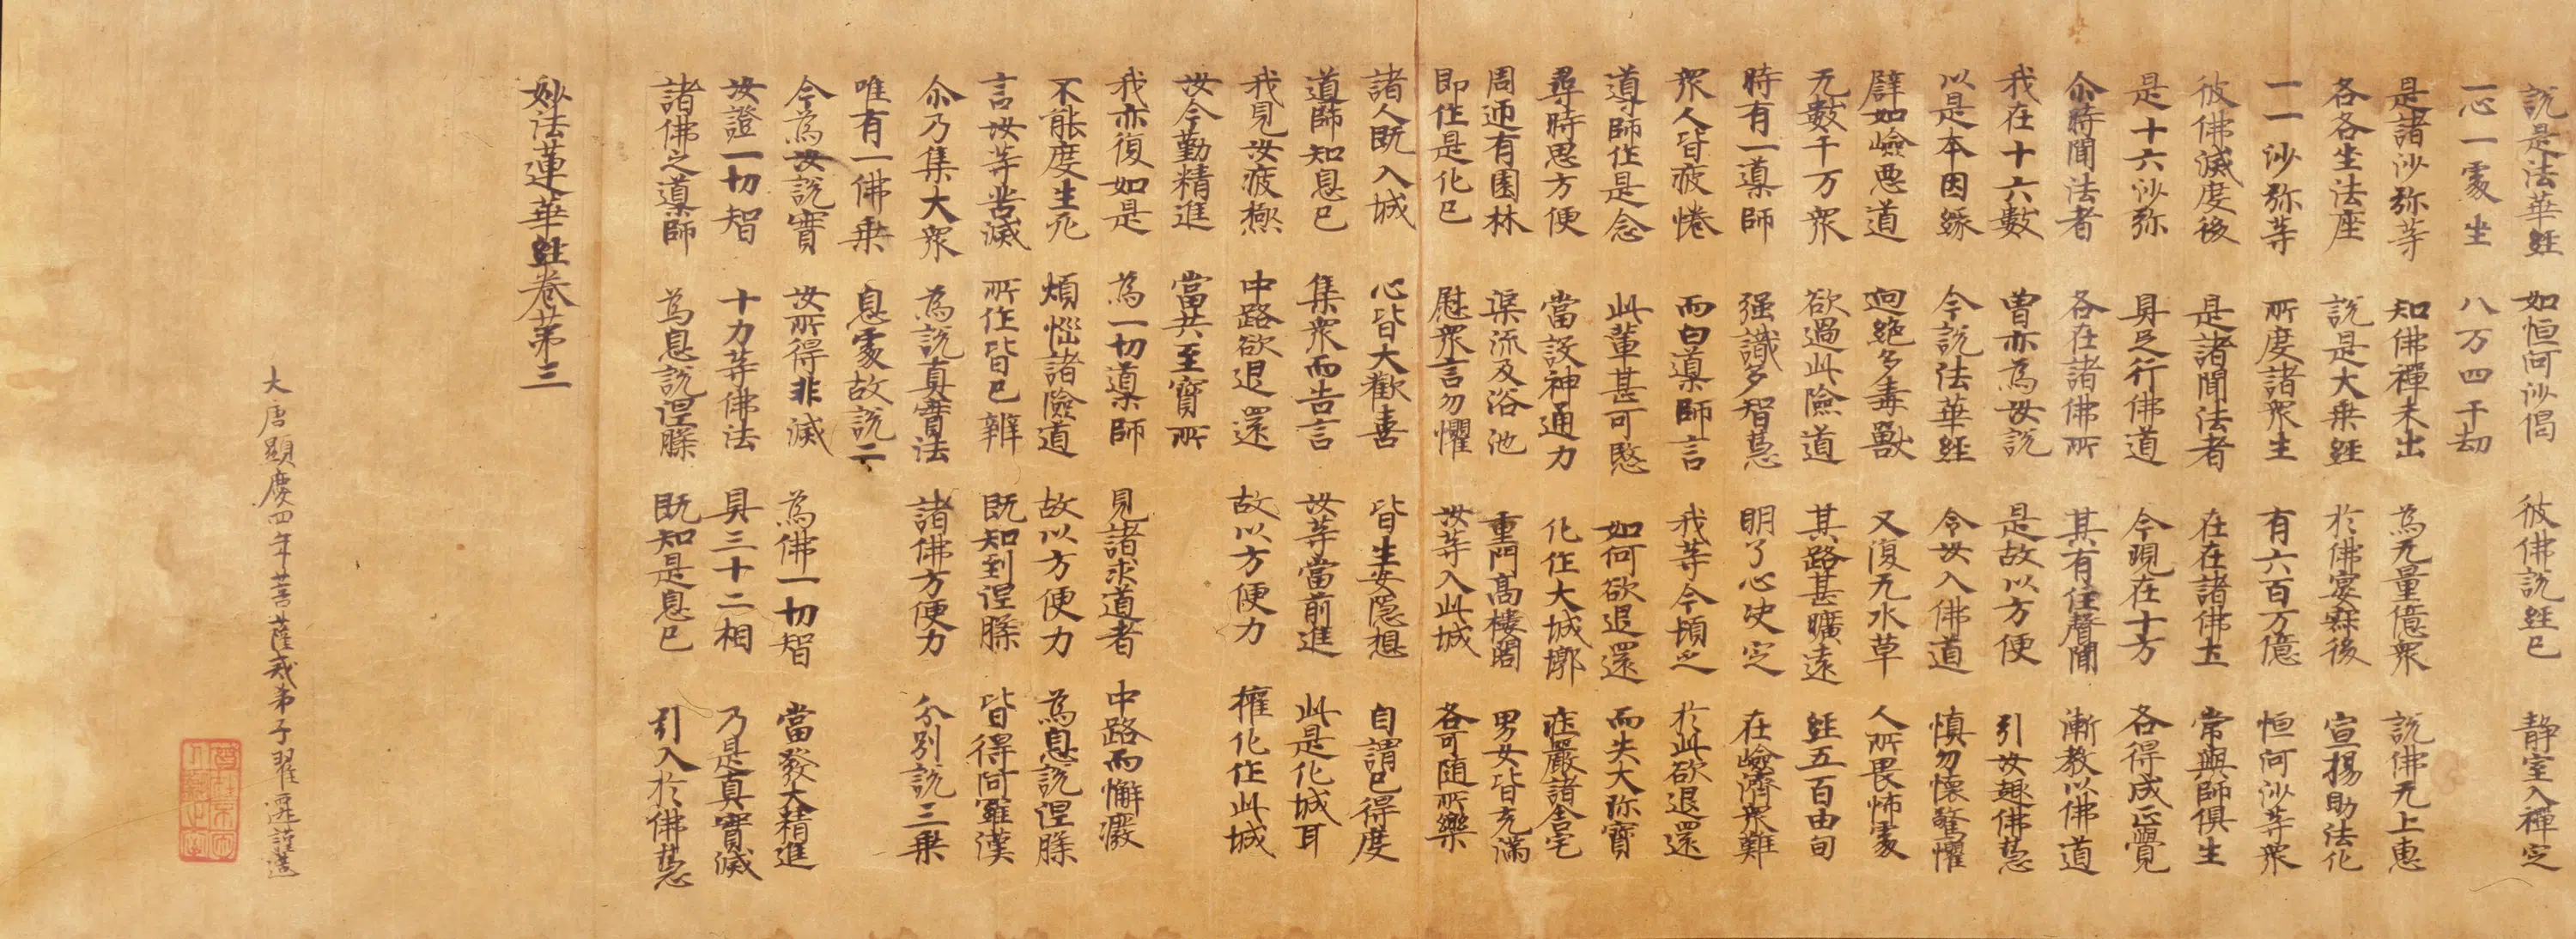 說是法華經 如恒河沙偈 彼佛說經已 静室入禪定
一心一處坐 八万四千劫
是諸沙弥等 知佛禪未出 為无量億衆 說佛无上惠
各各坐法座 說是大乗經 於佛宴寂後 宣揚助法化
一一沙弥等 所度諸衆生 有六百万億 恒河沙等衆
彼佛滅度後 是諸聞法者 在在諸佛土 常與師俱生
是十六沙弥 具足行佛道 今現在十方 各得成正覺
尒時聞法者 各在諸佛所 其有住聲聞 漸教以佛道
我在十六數 曽亦為汝說 是故以方便 引汝趣佛慧
以是本因縁 今說法華經 令汝入佛道 慎勿懷驚懼
譬如嶮惡道 迥絶多毒獸 又復无水草 人所畏怖處
无數千万衆 欲過此險道 其路甚曠遠 經五百由旬
時有一導師 强識多智慧 明了心决定 在嶮濟衆難
衆人皆疲惓 而白導師言 我等今頓乏 於此欲退還
導師作是念 此輩甚可愍 如何欲退還 而失大珎寶
尋時思方便 當設神通力 化作大城墎 莊嚴諸舍宅
周迊有園林 渠流及浴池 重門高樓閣 男女皆充滿
即作是化已 慰衆言勿懼 汝等入此城 各可随所樂
諸人既入城 心皆大歡喜 皆生安隱想 自謂已得度
道師知息已 集衆而告言 汝等當前進 此是化城耳
我見汝疲極 中路欲退還 故以方便力 權化作此城
汝今勤精進 當共至寶所
我亦復如是 為一切導師 見諸求道者 中路而懈癈
不能度生死 煩惱諸險道 故以方便力 為息說涅槃
言汝等苦滅 所作皆已辦 既知到涅槃 皆得阿羅漢
尒乃集大衆 為說真實法 諸佛方便力 分別說三乗
唯有一佛乗 息處故說二
今為汝說實 汝所得非滅 為佛一切智 當發大精進
汝證一切智 十力等佛法 具三十二相 乃是真實滅
諸佛之導師 為息說涅槃 既知是息已 引入於佛慧
妙法蓮華經卷第三
大唐顯慶四年菩薩戒弟子翟遷謹造